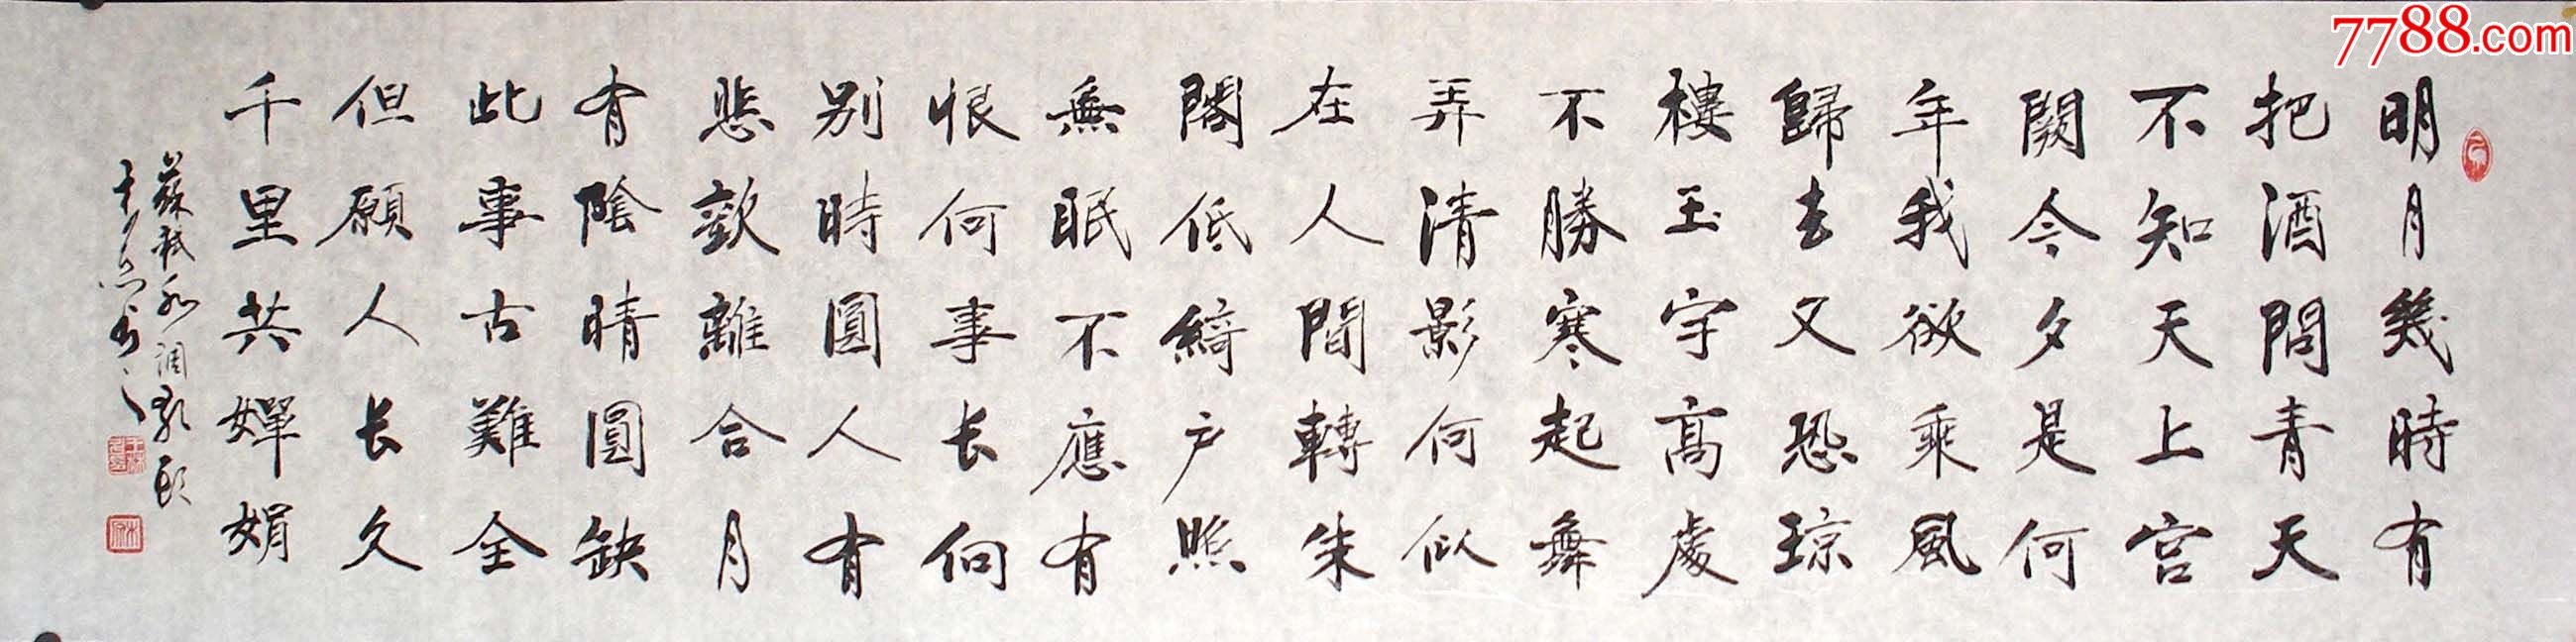 7788.com
明月幾時有
把酒問青天
不知天上宫
闕今夕是何
年我欲乘風
歸去又恐琼
樓玉宇高處
不勝寒起舞
弄清影何似
在人間轉朱
閣低綺户照
無眠不應有
恨何事长向
别時圓人有
悲歡離合月
有陰晴圓缺
此事古難全
但願人长久
千里共嬋娟
蘇軾水调歌头